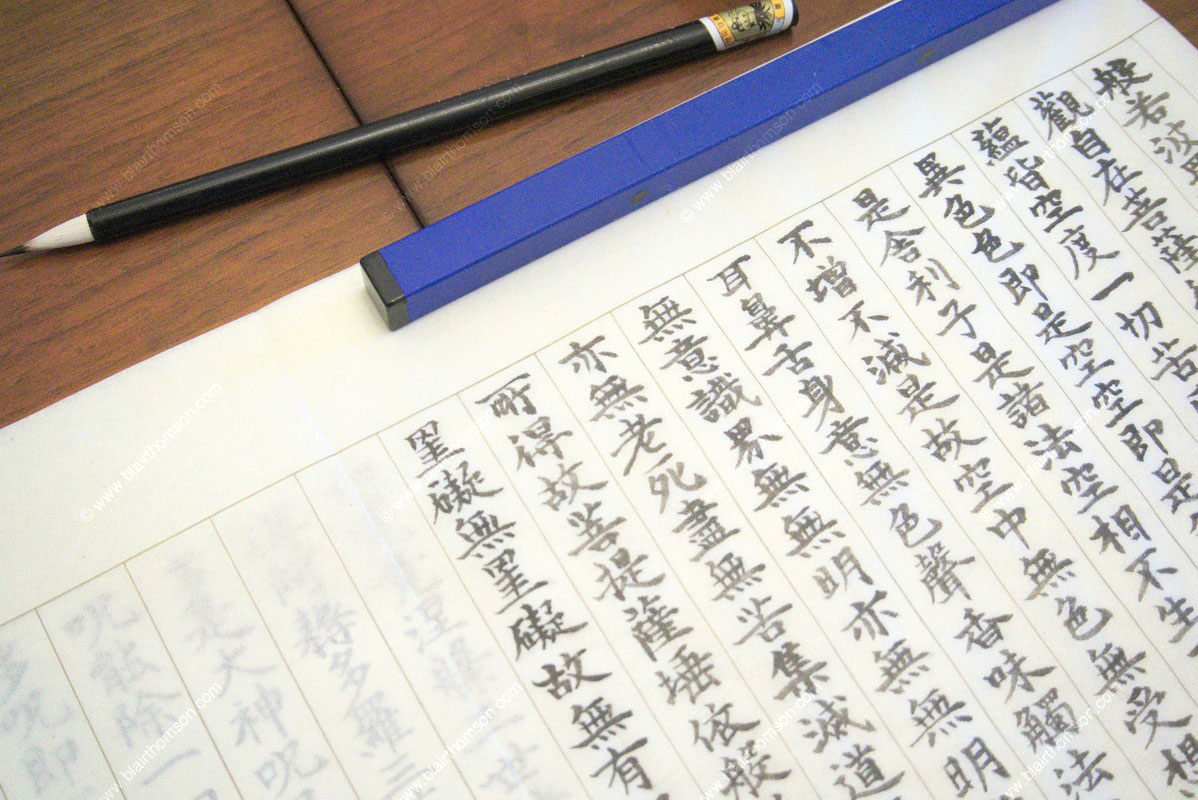 般若波
觀自在菩薩
蘊皆空度一切苦
異色色即是空空即是
是舍利子是諸法空相不生
不增不減是故空中無色無受想
耳鼻舌身意無色聲香味觸法
無意識界無無明亦無無明
亦無老死盡無苦集滅道
所得故菩提薩埵依般
罣礙無罣礙故無有
涅槃三世
耨多羅三
是大神呪
呪能除一
多呪即
© www.blairthomson.com